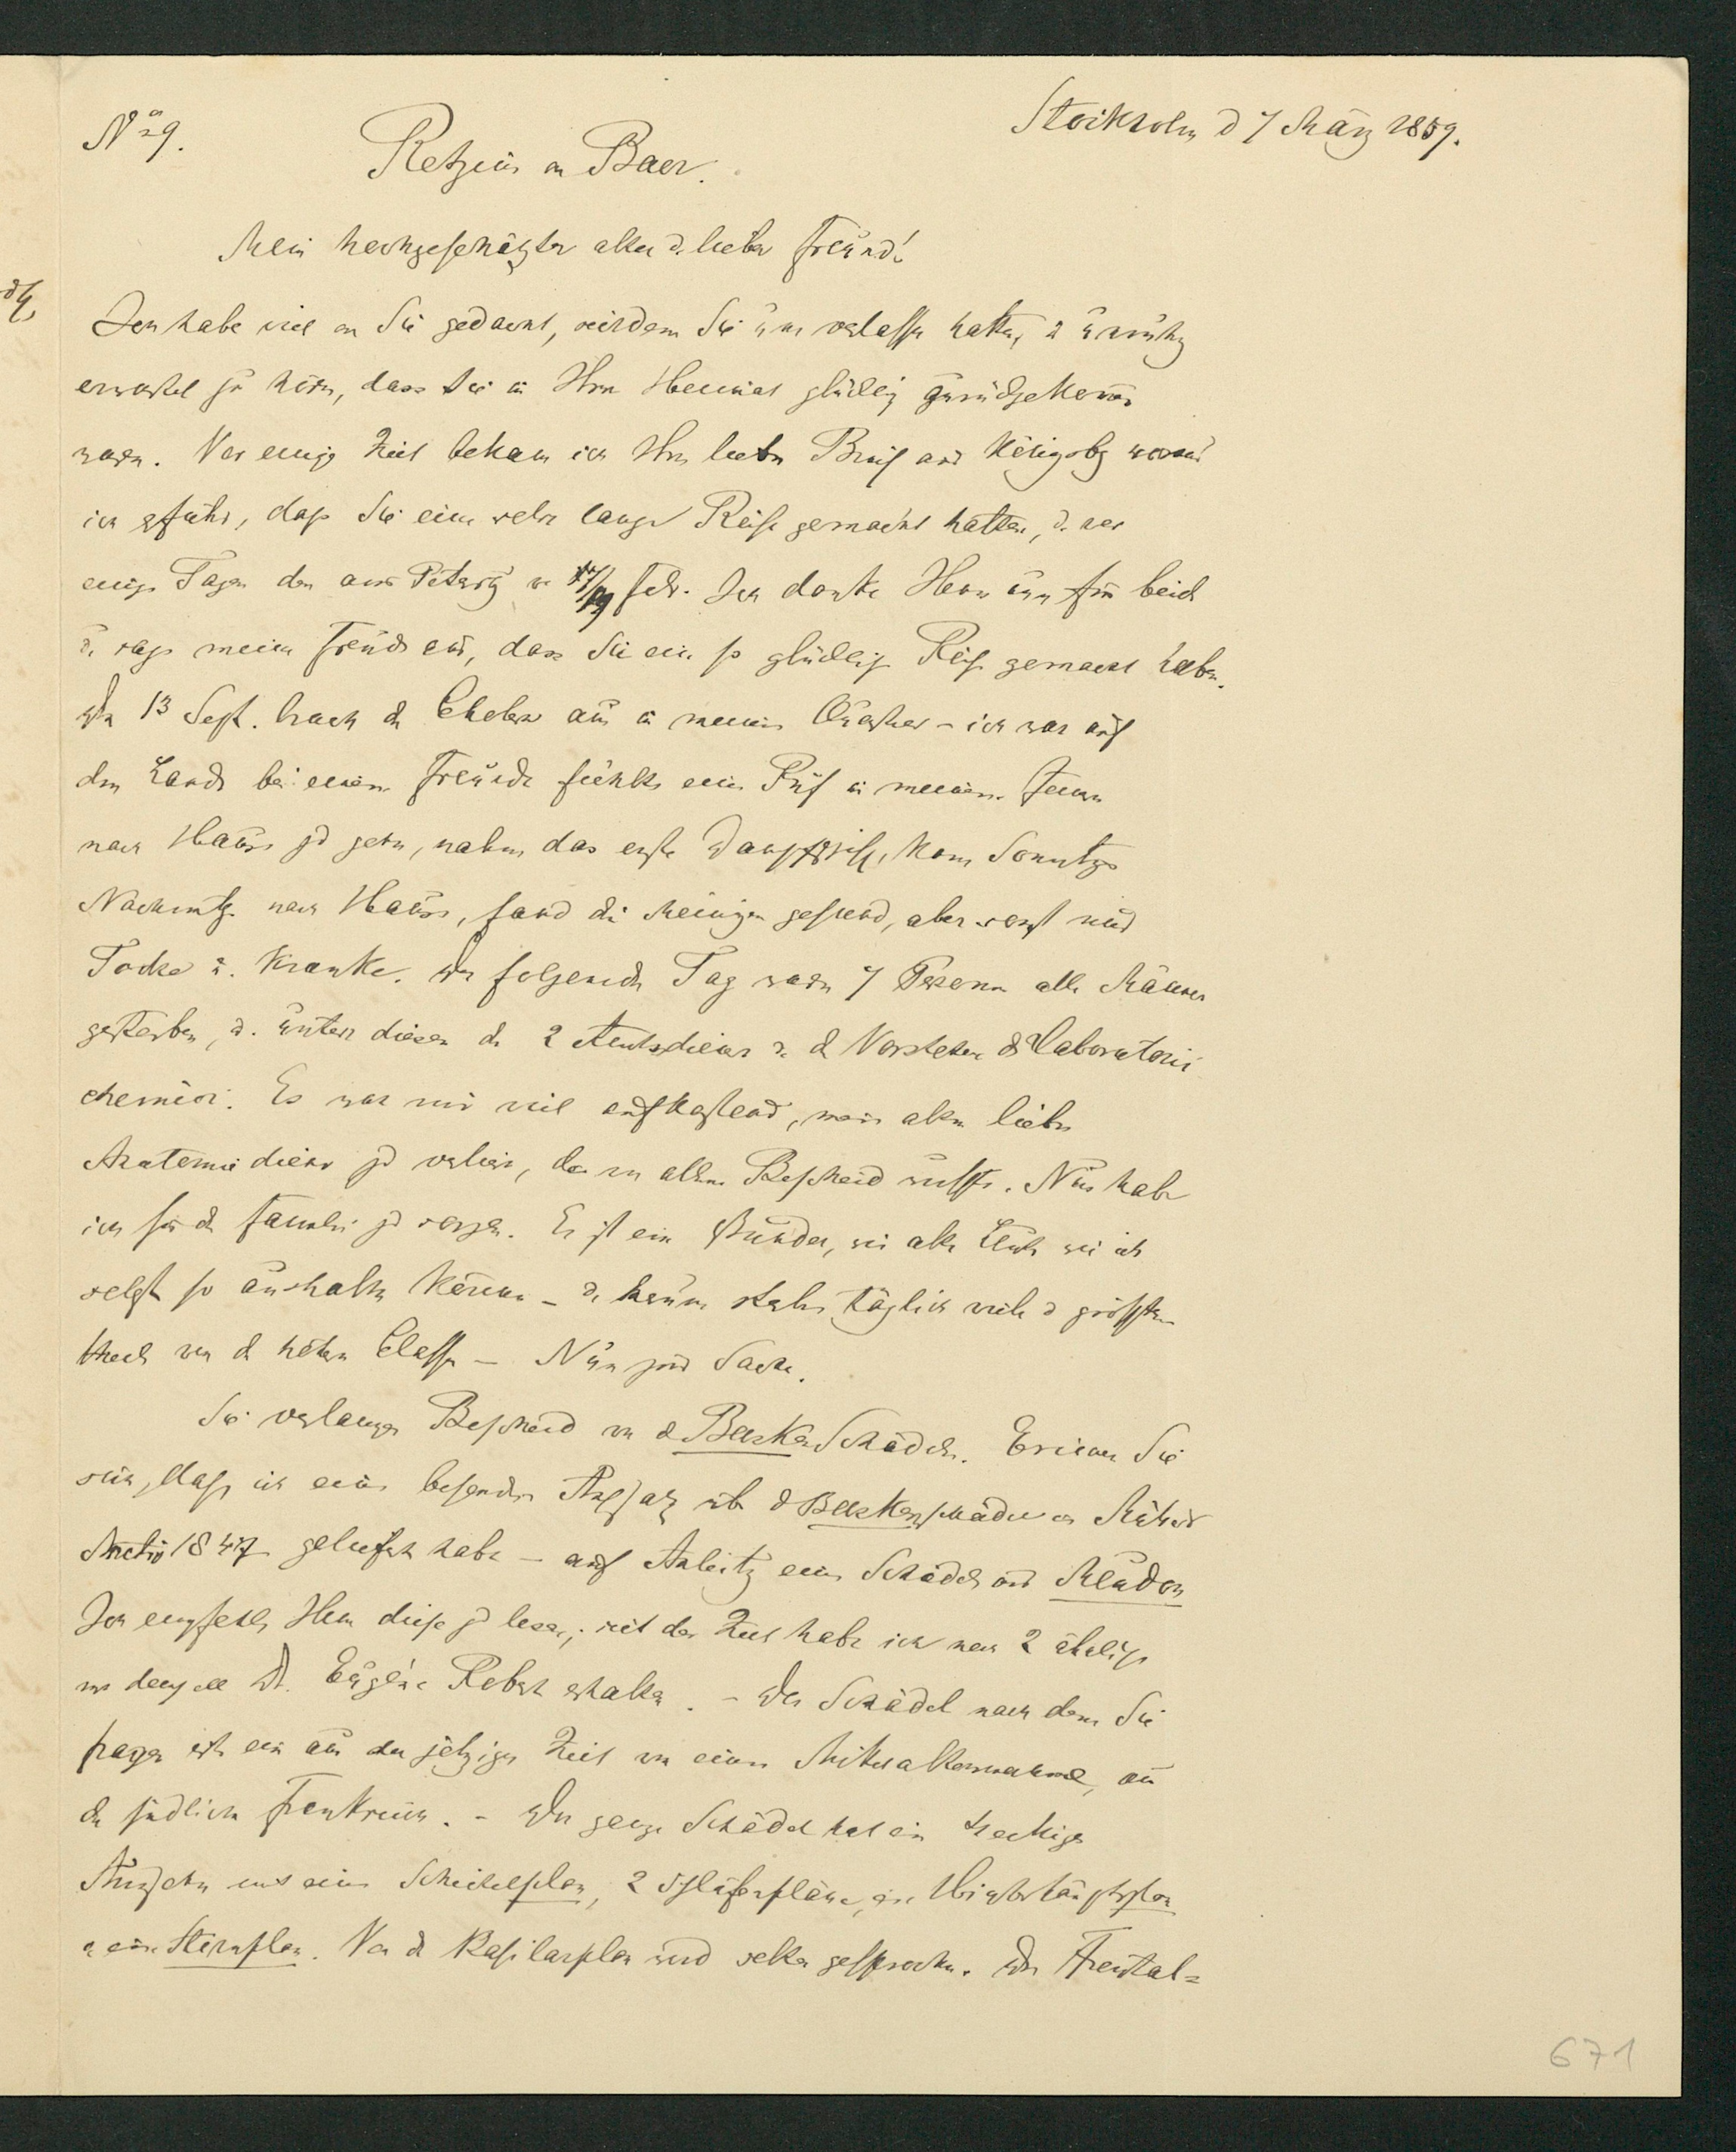 No 29.
Stockholm d 7 März 1859.
Retzius an Baer.
Mein hochgeschätzter alter u. lieber Freund!
Ich habe viel an Sie gedacht, seitdem Sie uns verlassen hatten, u unruhig
erwartet zu hören, dass Sie in Ihre Heimat glücklig zurückgekommen
waren. Vor einige Zeit bekam ich Ihren lieben Brief aus Königsbg woraus
ich erfuhr, dass Sie eine sehr lange Reise gemacht hatten, u. vor
einige Tagen den aus Petersbg v. 17/29 Febr. Ich danke Ihnen nun für beide
u. sage meine Freude aus, dass Sie eine so glücklige Reise gemacht haben.
Den 13 Sept. brach die Cholera aus in meinem Quartier – ich war auf
dem Lande bei einem Freunde fühlte ein Ruf in meinem Innern
nach Hause zu gehen, nahm das erste Dampfschiff, kam Sonntags
Nachmittg. nach Hause, fand die Meinigen gesund, aber sonst nur
Todte u. Kranke. Den folgenden Tag waren 7 Personen alle Männer
gestorben, u. unter diesen die 2 Amtsdiener u. d Vorsteher des Laboratorii
chemici. Es war mir viel aufkostend, mein alten lieben
Anatomiediener zu verlieren, der von allem Bescheid wusste. Nun habe
ich für die Familie zu sorgen. Es ist ein Wunder, wie alte Leute wie ich
selbst so aushalten können – u. herum sterben täglich viele u grössten
theils von d höhern Classen – Nun zur Sache.
Sie verlangen Bescheid von d Basken Schädeln. Erinnern Sie
sich, dass ich einen besondern Aufsatz üb d Baskenschädel in Müllers
Archiv 1847 geliefert habe – auf Anleitg eines Schädels aus Meudon
Ich empfehle Ihnen diese zu lesen; seit der Zeit habe ich noch 2 ähnlige
von demselb Dr. Eugène Robert erhalten. – Der Schädel nach dem Sie
fragen ist ein aus der jetzigen Zeit von einem Mittelalter, aus
d südlichen Frankreich. – Der ganze Schädel hat ein eckiges
Aussehen mit einem Scheitelplan, 2 Schläfenpläne, ein Hinterhauptsplan
u ein Stirnplan. Von d Basilarplan wird selten gesprochen. Der Frontal=
671